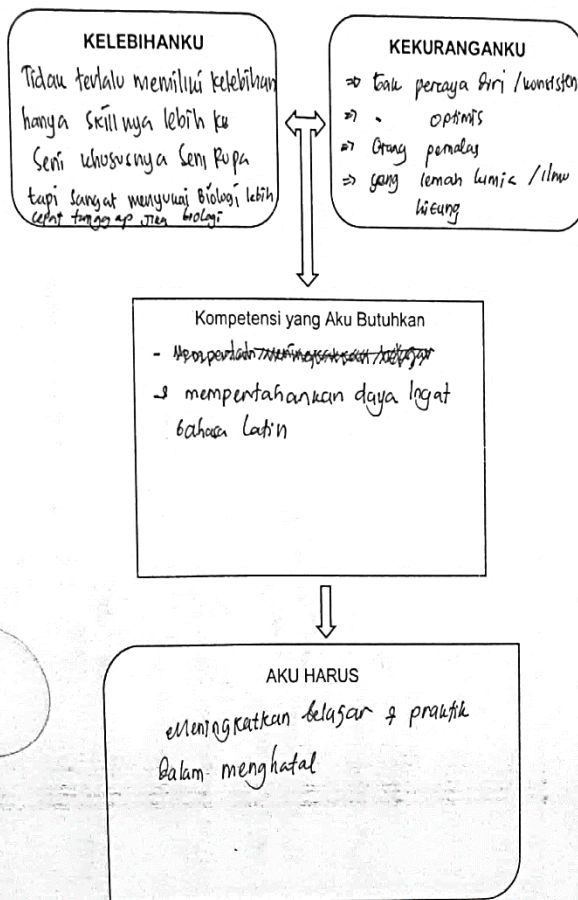 KELEBIHANKU
Tidak terlalu memiliki kelebihan
hanya skill nya lebih ke
Seni khususnya Seni Rupa
tapi sangat menyukai Biologi lebih
cepat tanggap biologi
KEKURANGANKU
⇒ tak percaya diri / konsisten
⇒ " optimis
⇒ Orang pemalas
⇒ yang lemah kimia / ilmu
hitung
Kompetensi yang Aku Butuhkan
-
→ mempertahankan daya Ingat
bahasa Latin
AKU HARUS
Meningkatkan belajar & praktik
Dalam menghafal